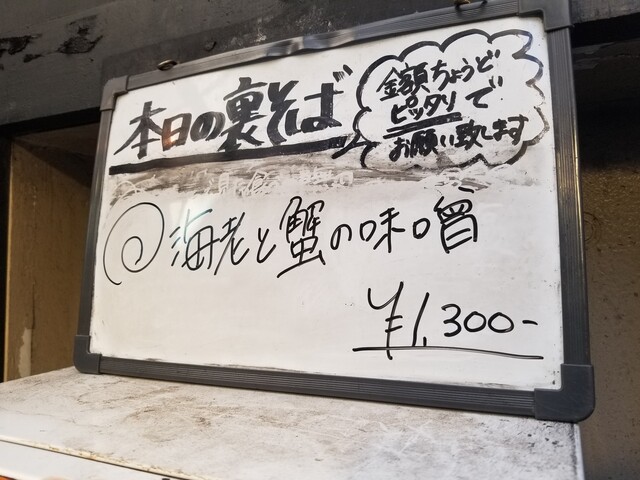 本日の裏そば
金額ちょうど
ピッタリで
お願い致します
海老と蟹の味噌
¥1,300-